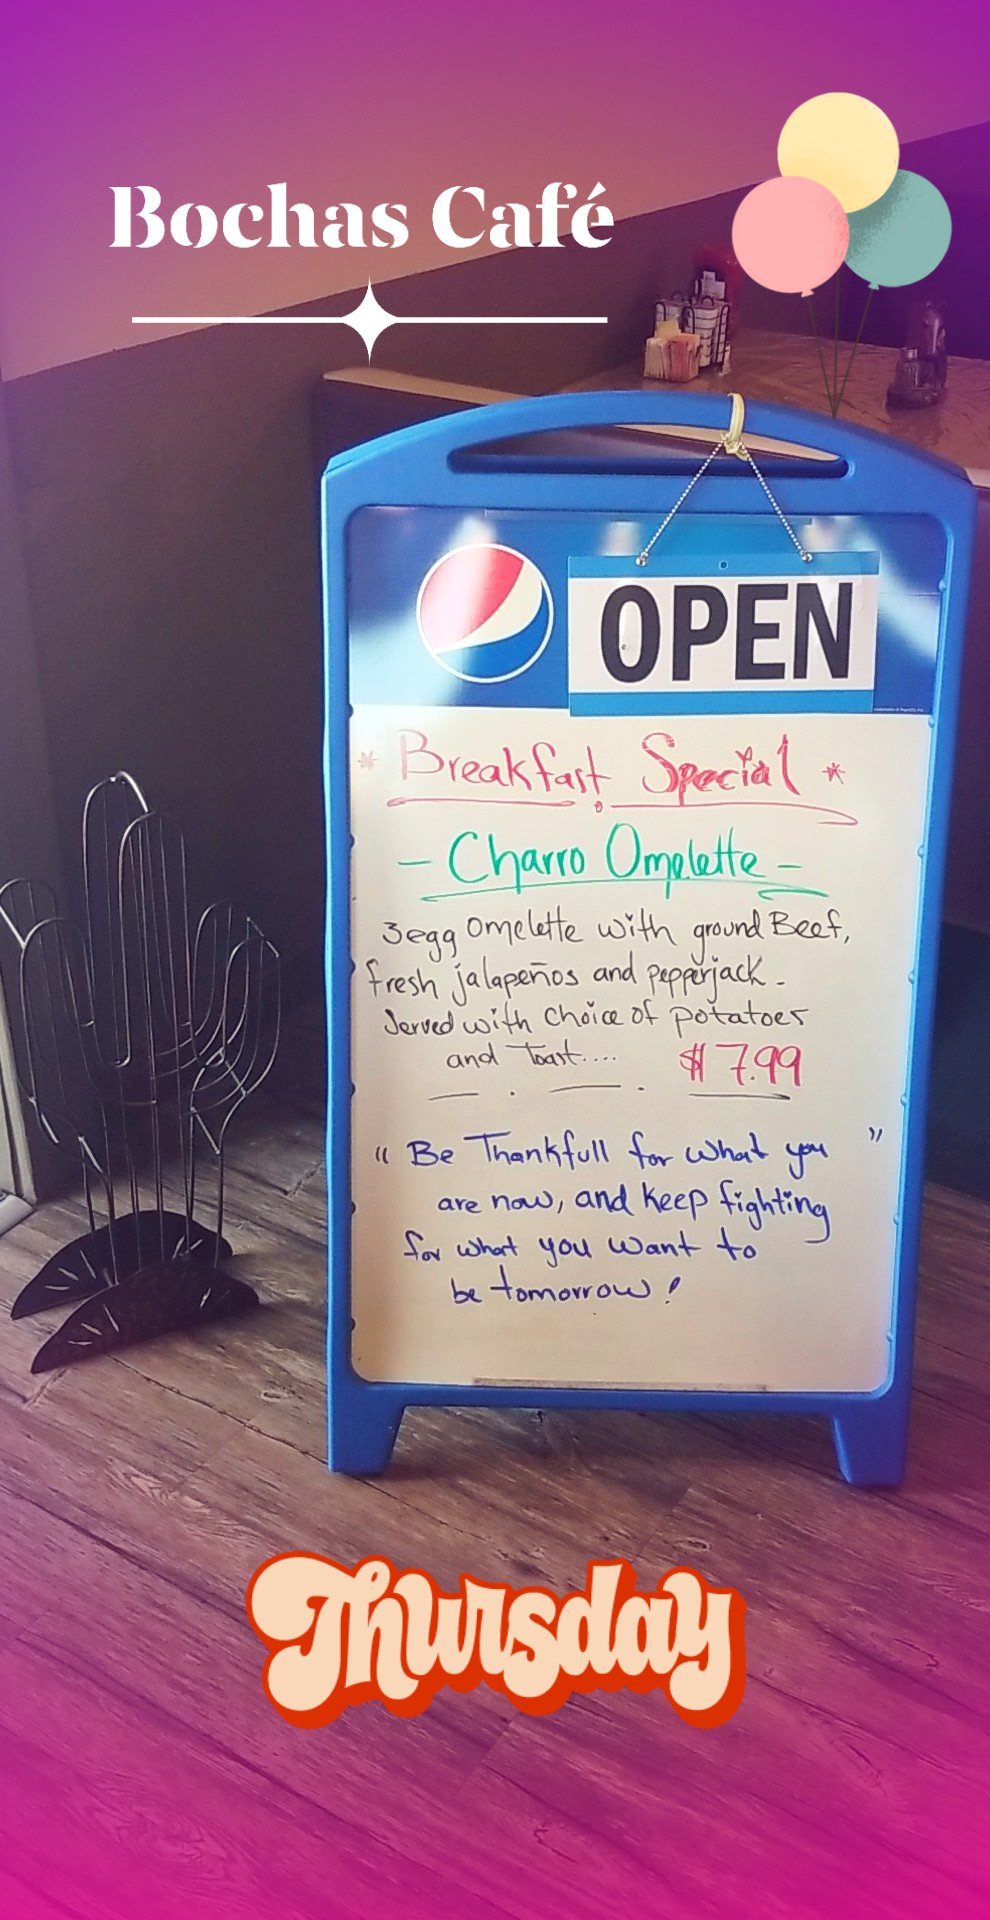 Bochas Café
OPEN
* Breakfast Special *
- Charro Omelette -
3egg omelette with ground Beef,
fresh jalapeños and pepperjack.
Served with choice of potatoes
and Toast.... $7.99
" Be Thankfull for what you "
are now, and keep fighting
for what you want to
be tomorrow!
Thursday